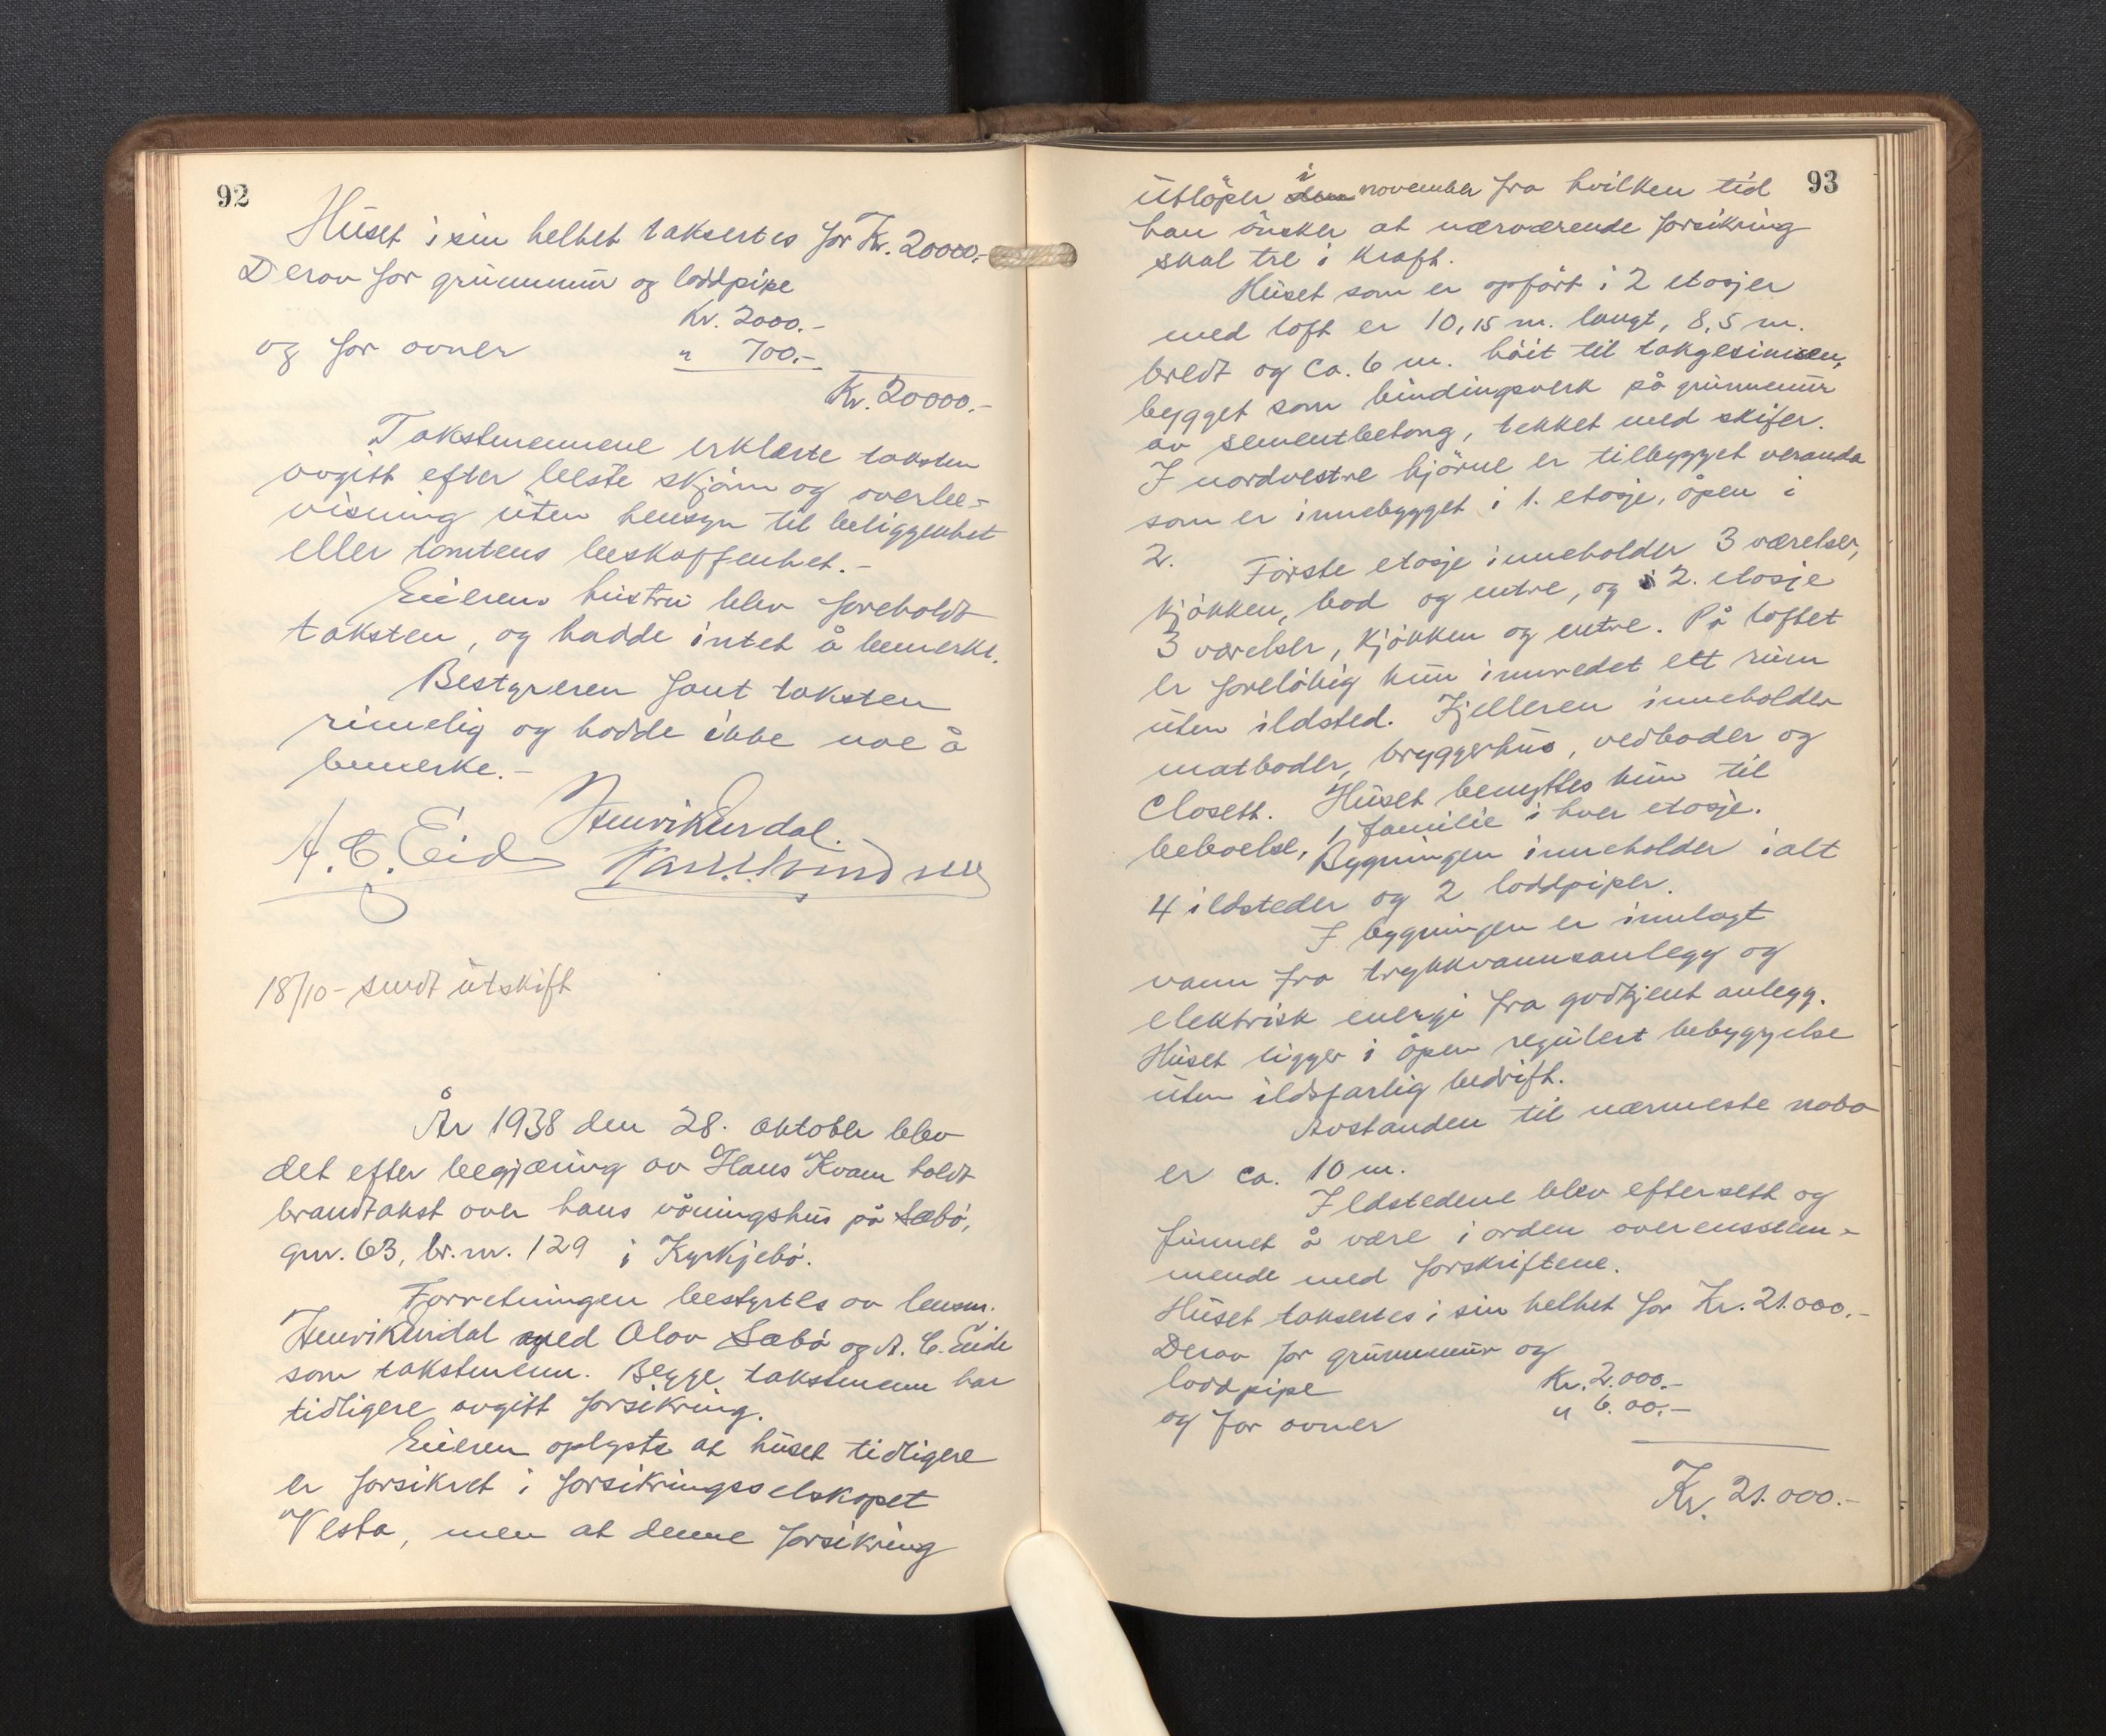 92
Huset i sin helhet taksertes for Kr. 20000.-
Derav for grunnmur og loddpipe
Kr. 2000.-
og for ovner " 700.-
Kr. 20000.-
Takstmennene erklærte taksten
avgitt efter beste skjønn og overbe-
visning uten hensyn til beliggenhet
eller tomtens beskaffenhet.-
Eierens hustru blev foreholdt
taksten, og hadde intet å bemerke.
Bestyreren fant taksten
rimelig og hadde ikke noe å
bemerke.-
Henrik Endal.
A. C. Eide
18/10- sendt utskift
År 1938 den 28. oktober blev
det efter begjæring av Hans Kvam holdt
brandtakst over hans våningshus på Sæbö,
gnr. 63, br.nr. 129 i Kyrkjebö.
Forretningen bestyrtes av lensm.
Henrik Endal med Olav Sæbö og A. C. Eide
som takstmenn. Begge takstmenn har
tidligere avgitt forsikring.
Eieren oplyste at huset tidligere
er forsikret i forsikringsselskapet
Vesta, men at denne forsikring
93
utlöper den i november fra hvilken tid
han önsker at nærværende forsikring
skal tre i kraft.
Huset som er opfört i 2 etasjer
med loft er 10,15 m. langt, 8,5 m.
bredt og ca. 6 m. höit til takgesimsen,
bygget som bindingsverk på grunnmur
av sementbetong, tekket med skifer.
I nordvestre hjörne er tilbygget veranda
som er innebygget i 1. etasje, åpen i
2.
Förste etasje inneholder 3 værelser,
kjökken, bod og entre, og i 2. etasje
3 værelser, kjökken og entre. På loftet
er forelöbig kun innredet ett rum
uten ildsted. Kjelleren inneholder
matboder, bryggerhus, vedboder og
closett. Huset benyttes kun til
beboelse, 1 familie i hver etasje.
Bygningen inneholder ialt
4 ildsteder og 2 loddpiper.
I bygningen er innlagt
vann fra trykkvannsanlegg og
elektrisk energi fra godkjent anlegg.
Huset ligger i åpen regulert bebyggelse
uten ildsfarlig bedrift.
Avstanden til nærmeste nabo
er ca. 10 m.
Ildstedene blev eftersett og
funnet å være i orden overensstem-
mende med forskriftene.
Huset taksertes i sin helhet for Kr. 21.000.-
Derav for grunnmur og
loddpipe Kr. 2.000.-
og for ovner " 6.00.-
Kr. 21.000.-